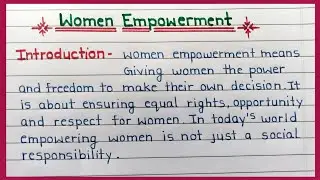 Women Empowerment
Introduction- women empowerment means
Giving women the power
and freedom to make their own decision. It
is about ensuring equal rights, opportunity
and respect for women. In today's world
empowering women is not just a social
responsibility.